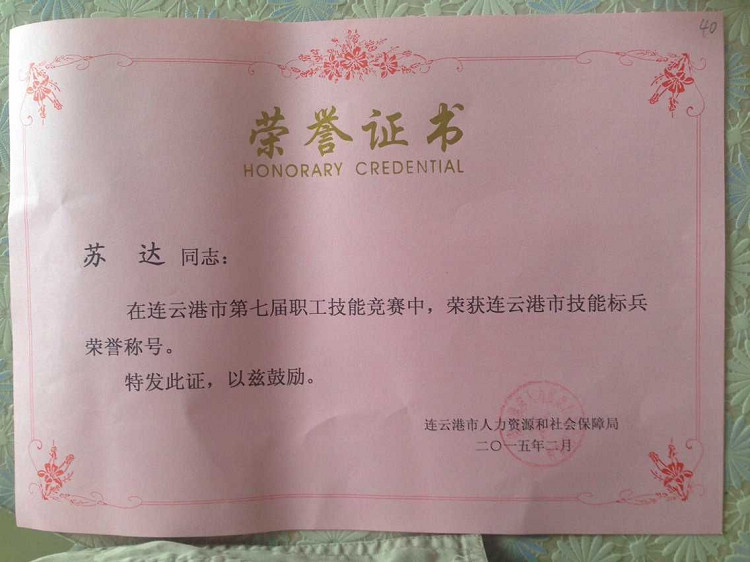 40
荣誉证书
HONORARY CREDENTIAL
苏 达 同志：
在连云港市第七届职工技能竞赛中，荣获连云港市技能标兵
荣誉称号。
特发此证，以兹鼓励。
连云港市人力资源和社会保障局
二〇一五年二月